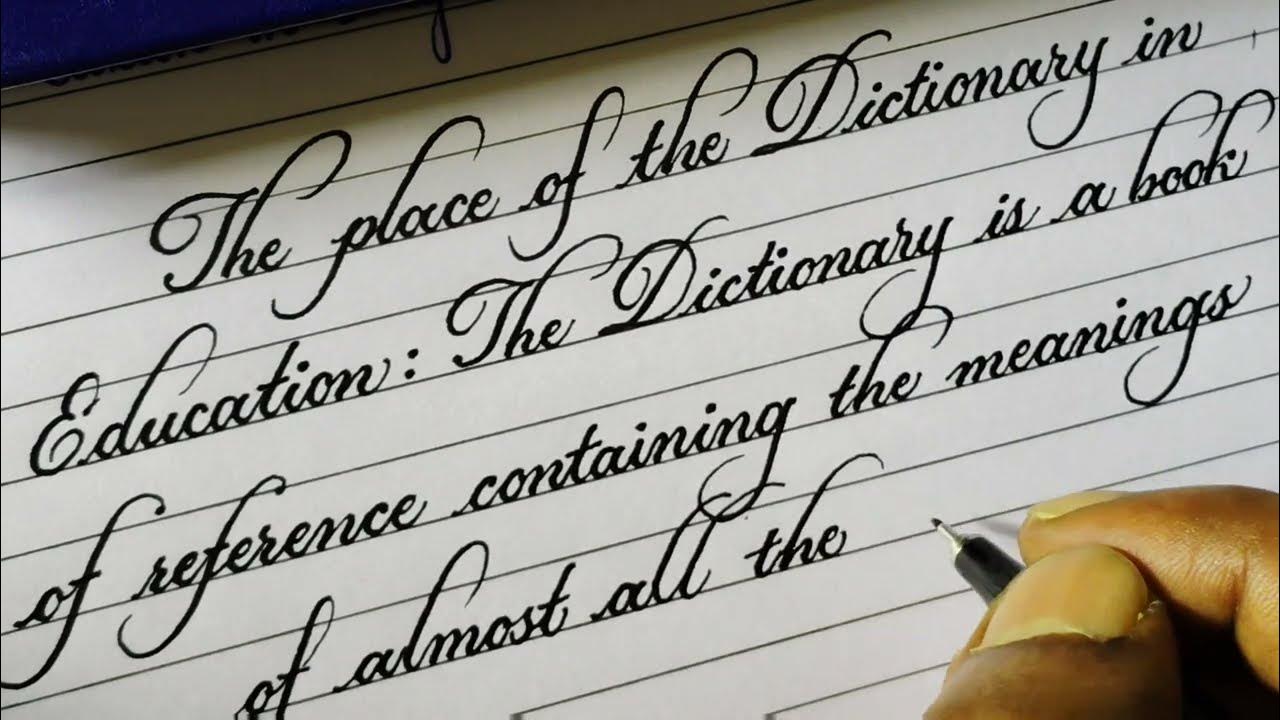 The place of the Dictionary in
Education: The Dictionary is a book
of reference containing the meanings
of almost all the